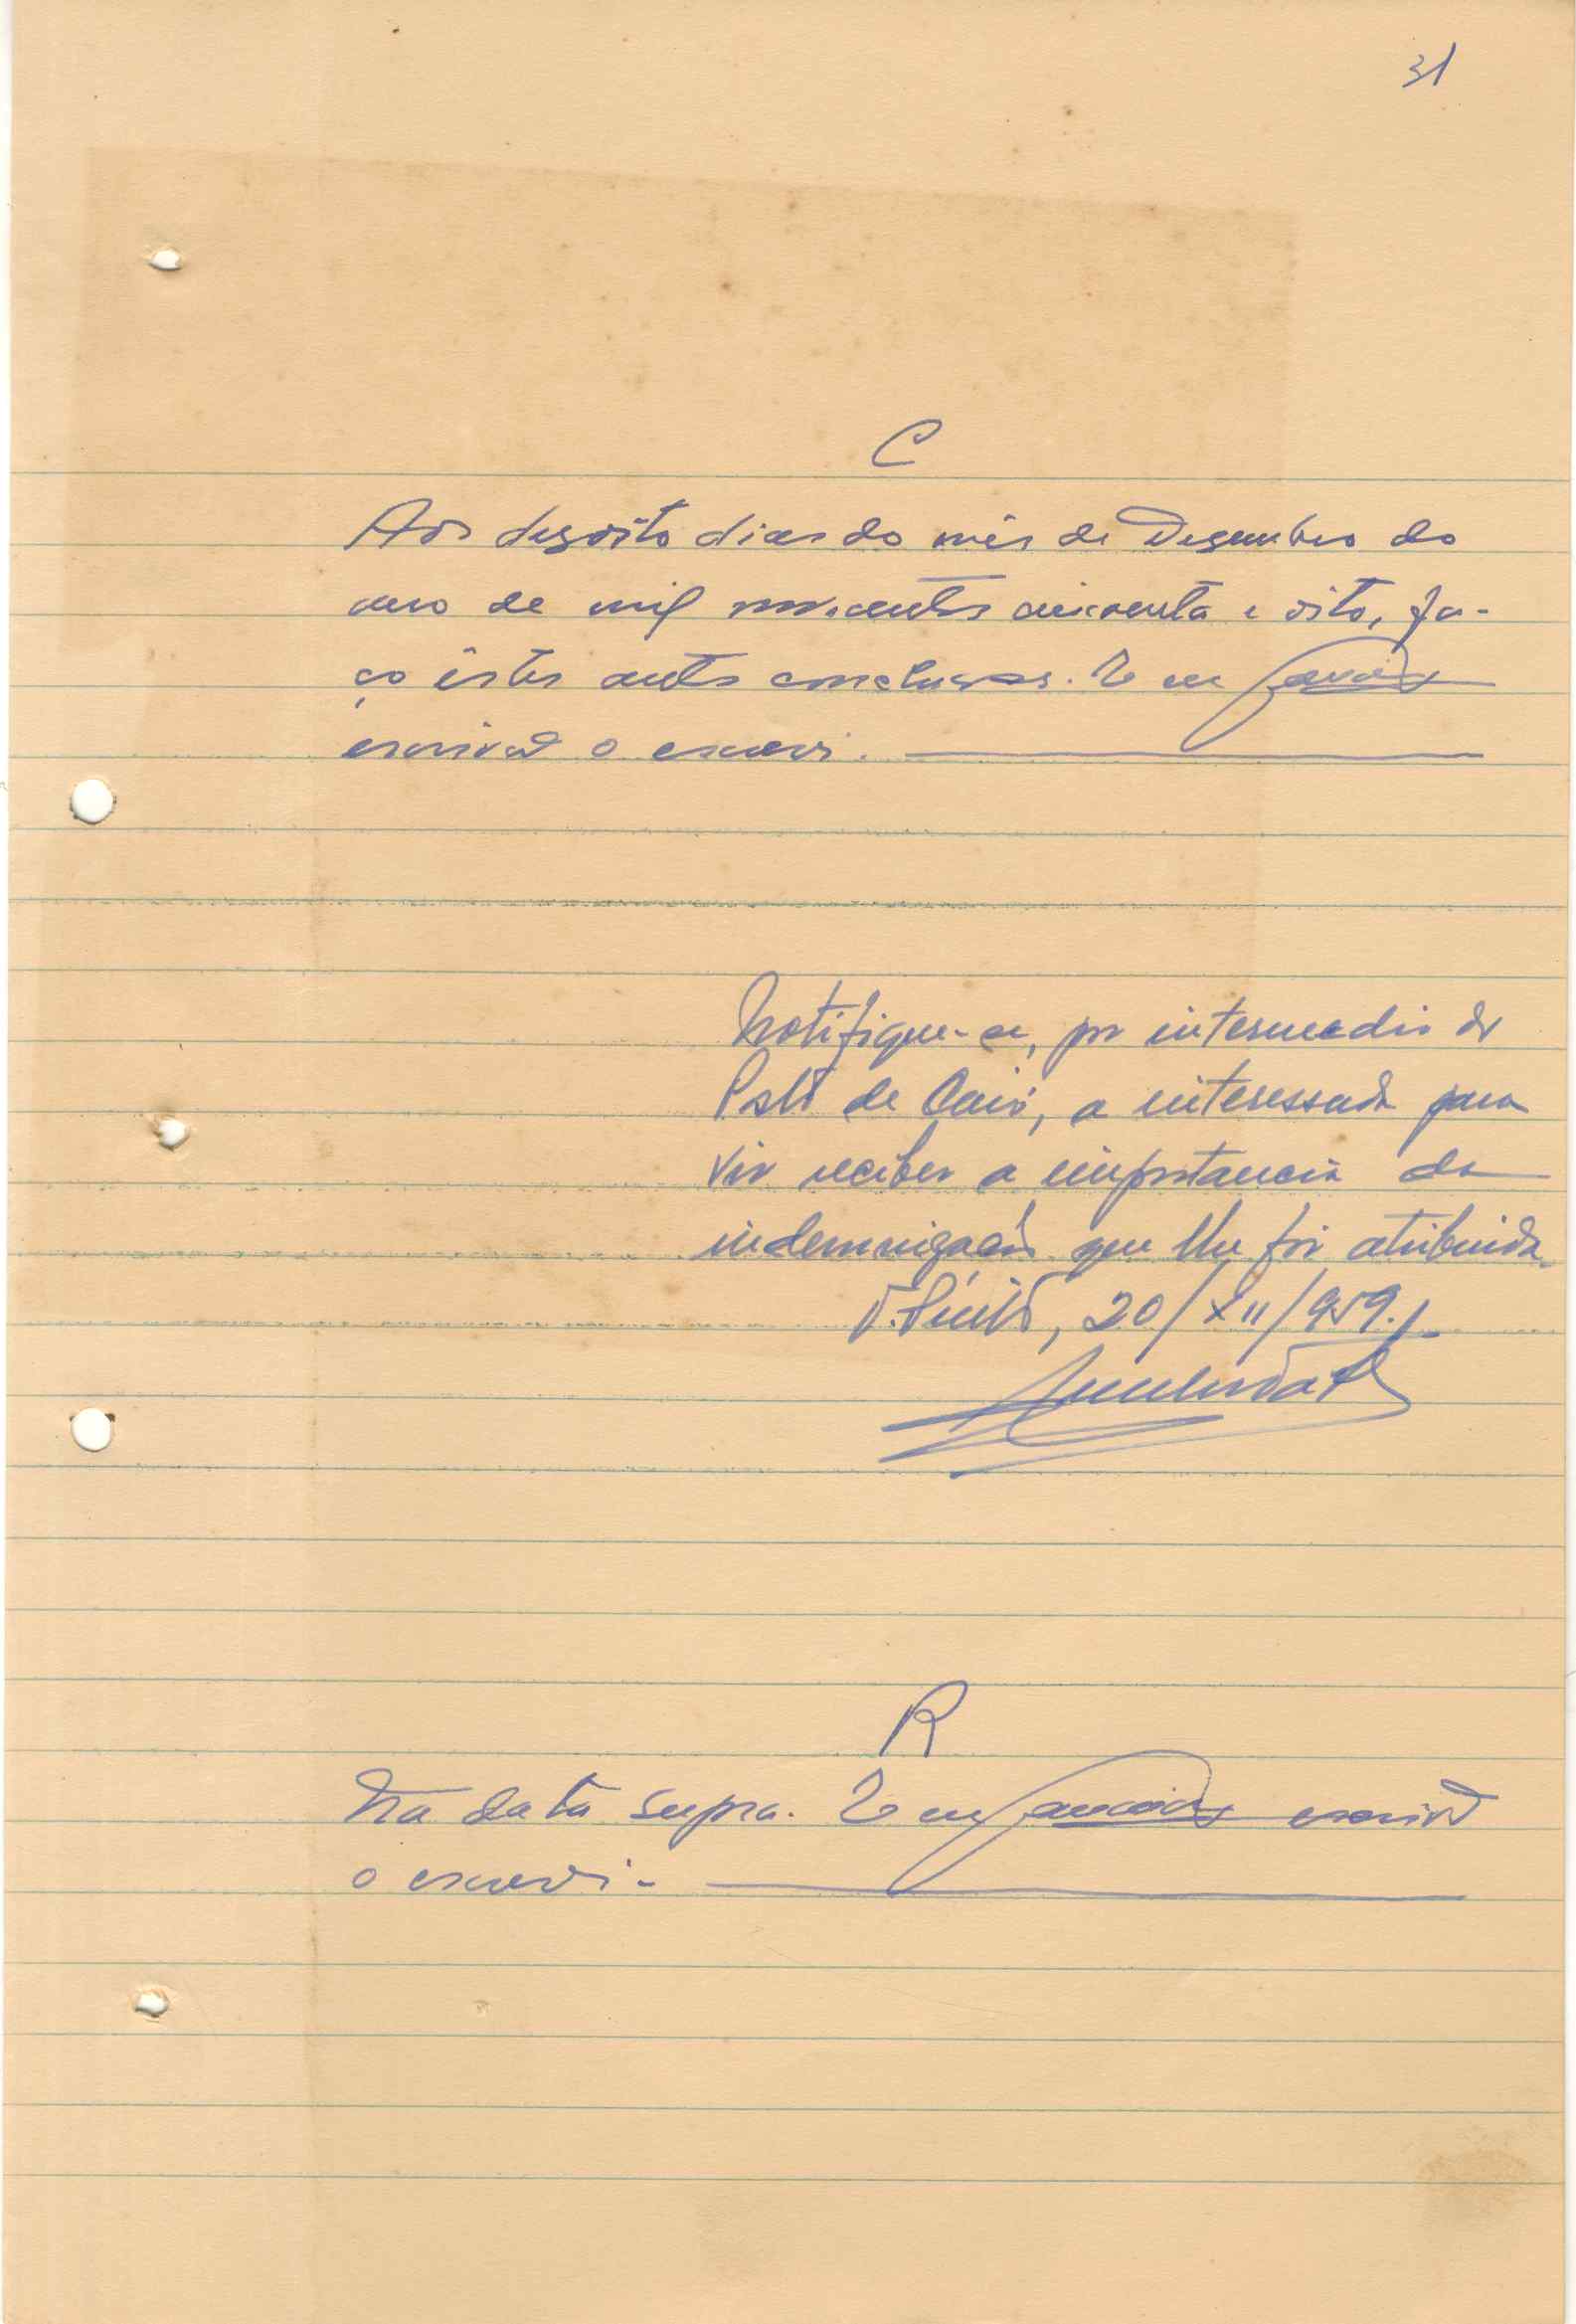 31
C
Aos desoito dias do mês de Dezembro do
ano de mil novecentos cincoenta e oito, fa-
ço êstes autos conclusos. E eu
escrivão o escrevi.
Notifique-se, por intermedio do
Posto de Caió, a interessada para
vir receber a importancia da
indemnização que lhe foi atribuida.
T. Pinto, 20/XII/959.
R
Na data supra. E eu escrivão
o escrevi.